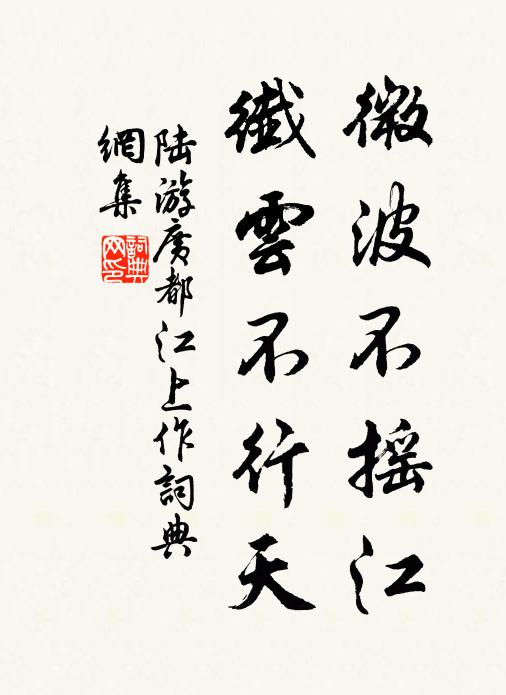 微波不摇江
纖雲不行天
陆游廣都江上作詞典
網集
詞典
网印